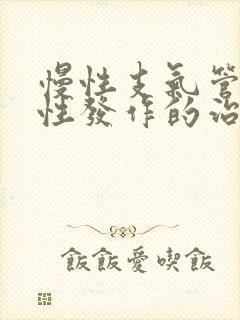 慢性支氣管
性發作的治
飯飯愛喫飯